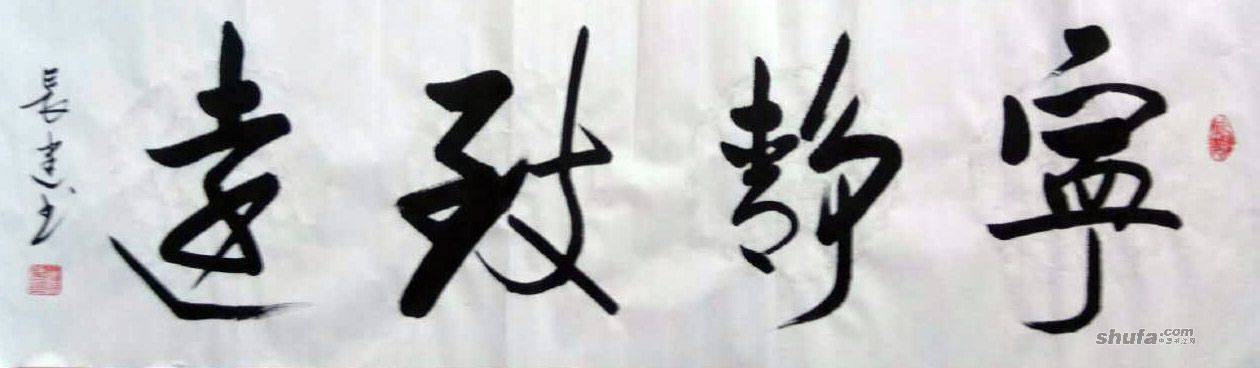 寧靜致遠
長建书
shufa.com